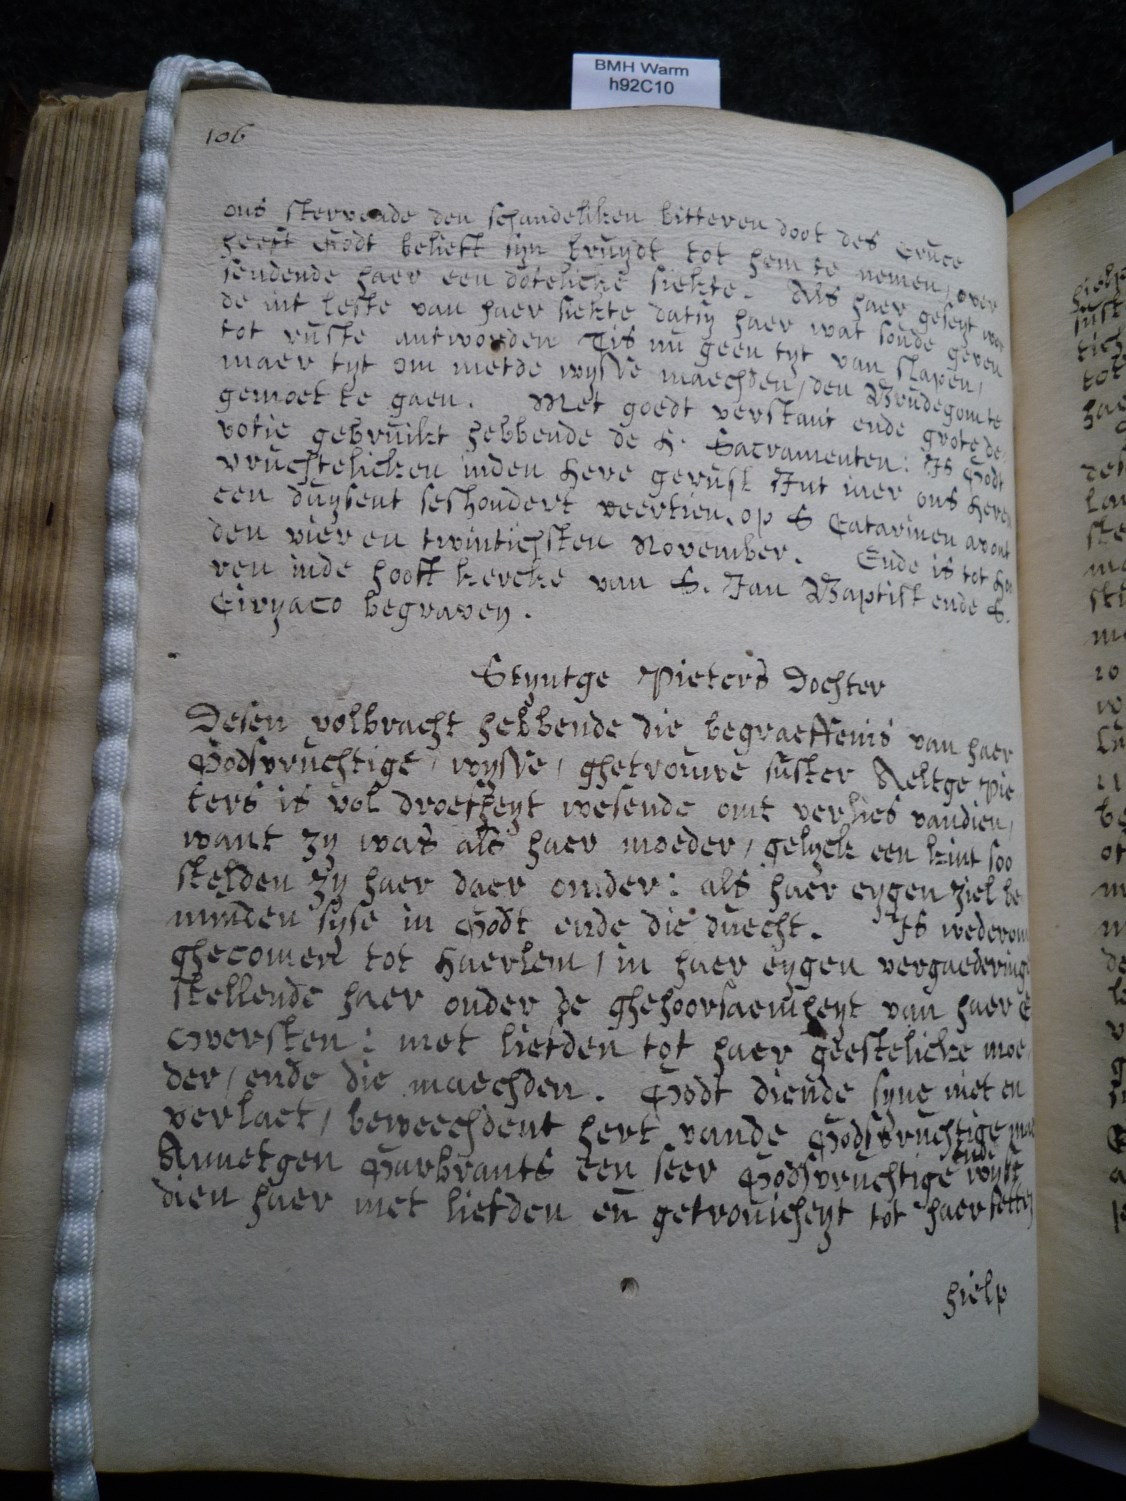 BMH Warm
h92C10
106
ons stervende den schandeliken bitteren doot des Cruce
heeft Godt belieft syn bruydt tot hem te nemen, over
sendende haer een dotelicke siekte. Als haer geseyt wor
de int leste van haer siekte datsy haer wat soude geven
tot ruste antworden Tis nu geen tyt van slapen,
maer tyt om metde wysse maechden, den Brudegom te
gemoet te gaen. Met goedt verstant ende grote de
votie gebruikt hebbende de H. Sacramenten: Is Godt
vruchtelicken inden Here gerust Int iaer ons Heren
een duysent seshondert veertien, op S Catarinen avont
den vier en twintichsten November. Ende is tot Haer
ren inde hooft kercke van S. Jan Baptist ende S.
Ciryaco begraven.
Styntge Pieters Dochter
Desen volbracht hebbende die begraeffenis van haer
Godsvruchtige, wysse, ghetrouwe suster Aeltge Pie
ters is vol droefheyt wesende omt verlies vandien,
want zy was als haer moeder, gelyck een kint soo
stelden zy haer daer onder: als haer eygen ziel be
minden syse in Godt ende die duecht. Is wederom
ghecomen tot Haerlem, in haer eygen vergaedering
stellende haer onder de ghehoorsaemheyt van haer E
Oversten: met liefden tot haer geestelicke moe
der, ende die maechden. Godt diende syne niet en
verlaet, beweechdent hert vande Godsvruchtige
Annetgen Garbrants een seer Godsvruchtige ende wyse
dien haer met liefden en getrouicheyt tot haer
hielp